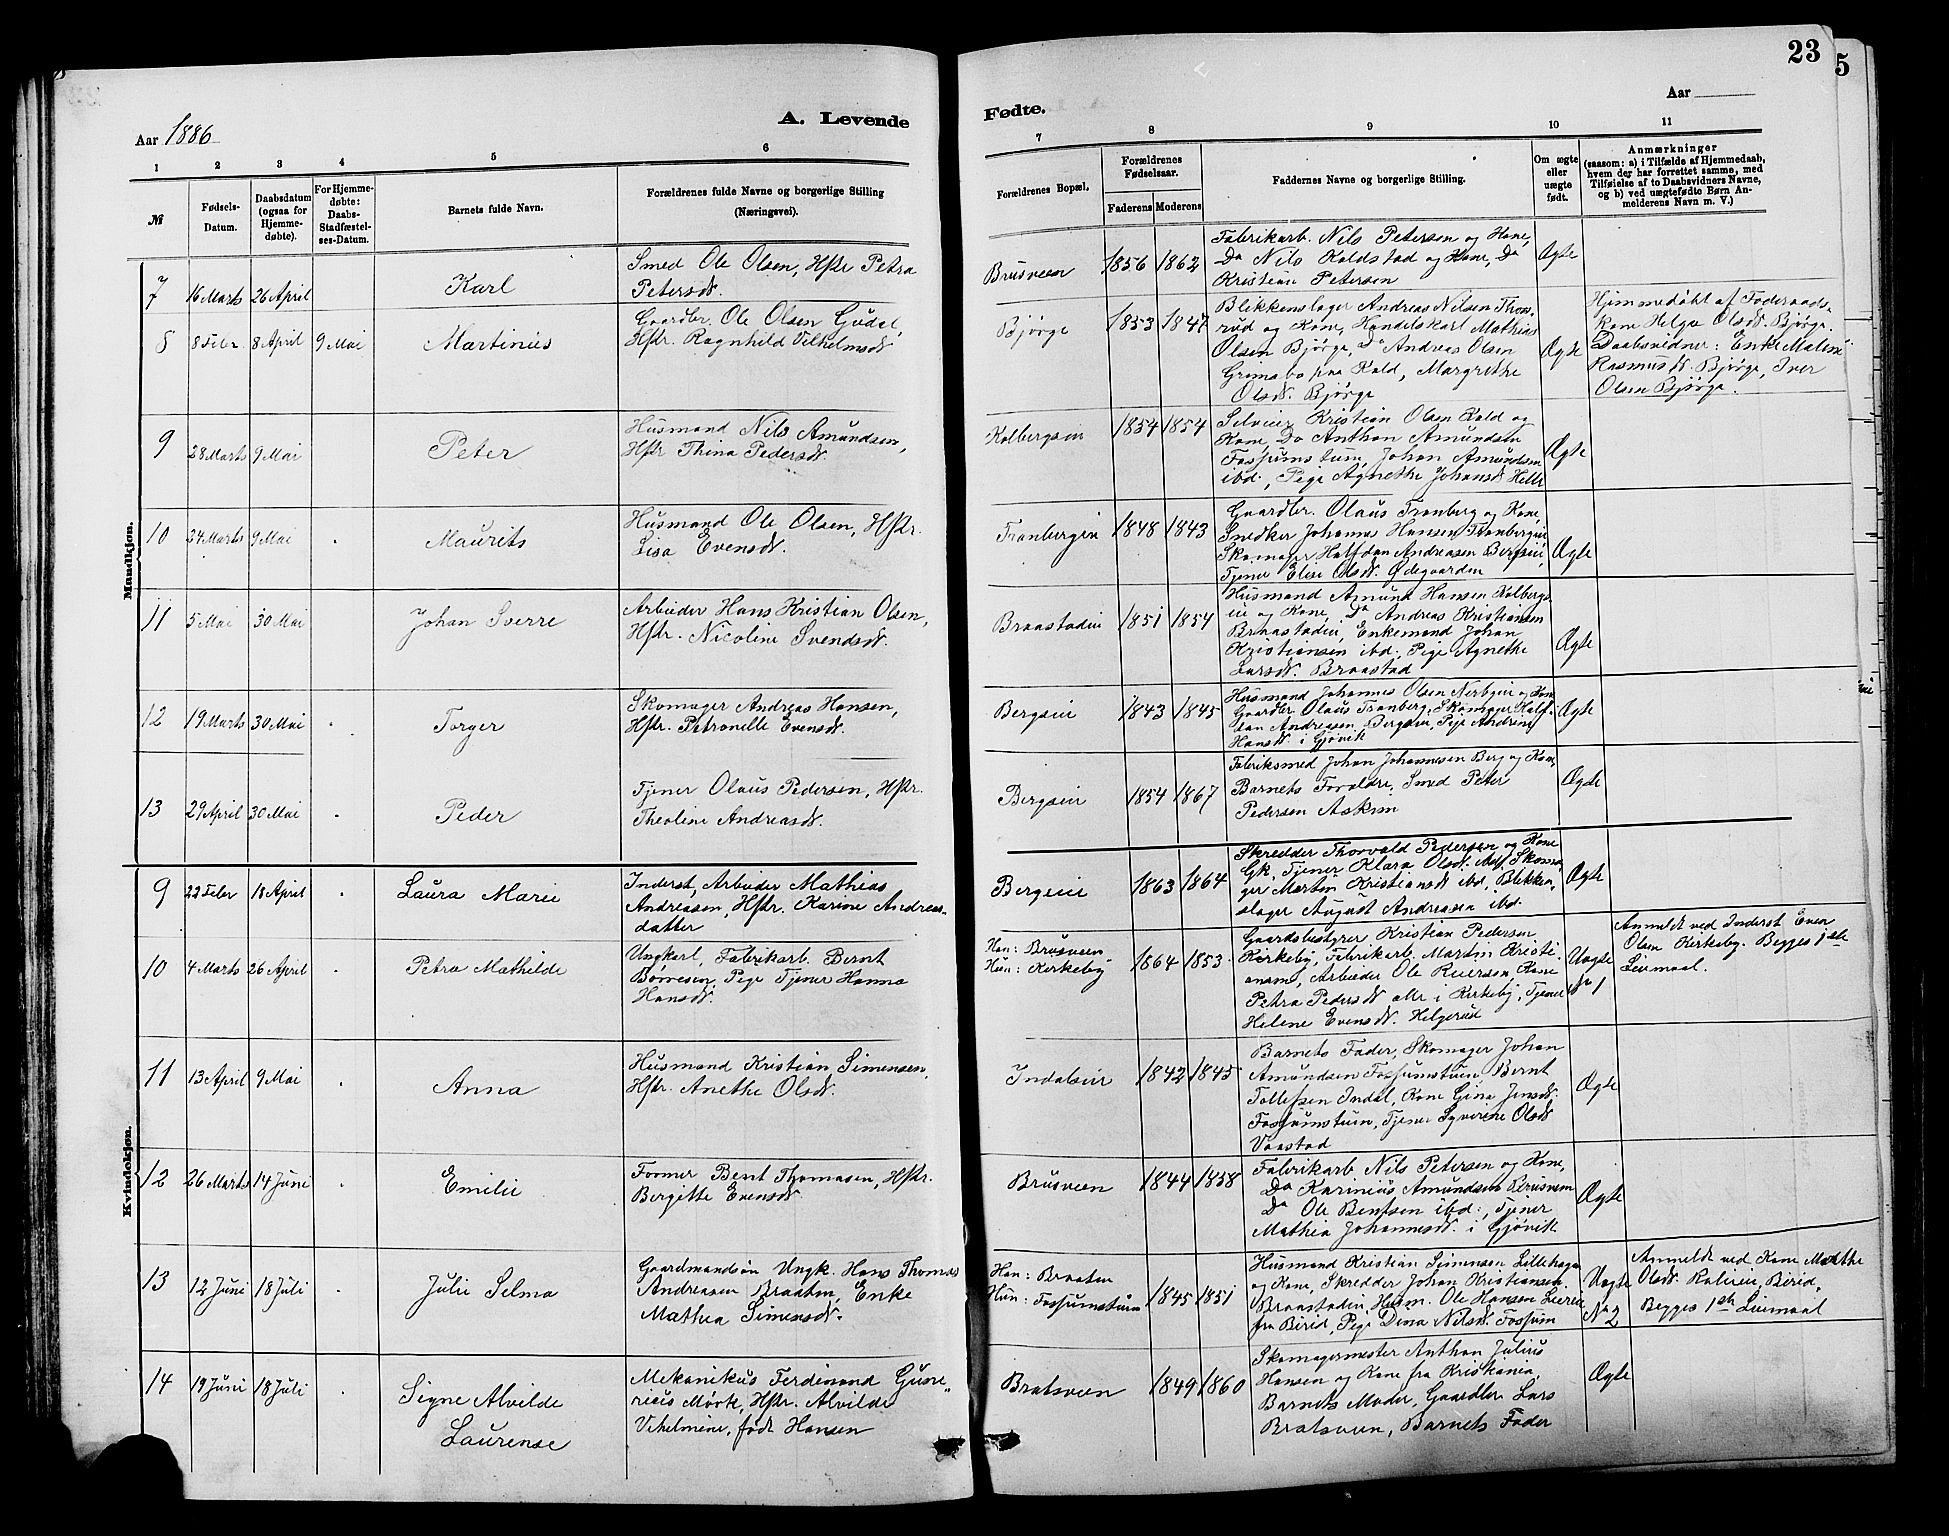 23
5
Aar 1886
A. Levende
Fødte.
Aar
1 2 3 4 5 6
7 8 9 10 11
№
Fødsels-
Datum.
Daabsdatum
(ogsaa for
Hjemme-
døbte).
For Hjemme-
døbte:
Daabs-
Stadfæstel-
ses-Datum.
Barnets fulde Navn.
Forældrenes fulde Navne og borgerlige Stilling
(Næringsvei).
Forældrenes Bopæl.
Forældrenes
Fødselsaar.
Faderens Moderens
Faddernes Navne og borgerlige Stilling.
Om ægte
eller
uægte
født.
Anmærkninger
(saasom: a) i Tilfælde af Hjemmedaab,
hvem der har forrettet samme, med
Tilføielse af to Daabsvidners Navne,
og b) ved uægtefødte Børn An-
melderens Navn m. V.)
Mandkjøn.
7 16 Marts 26 April Karl
Smed Ole Olsen, Hstr Petra
Petersdt.
Brusveen 1856 1862
Fabrikarb. Nils Petersen og Kone,
Do Nils Koldstad og Kone, Do
Kristian Petersen
Ægte
8 8 Febr. 8 April 9 Mai Martinus
Gaardbr. Ole Olsen Gudal,
Hstr. Ragnhild Vilhelmsdt
Bjørge 1853 1847
Blikkenslager Andreas Nilsen Thom-
rud og Kone, Handelskarl Mathias
Olsen Bjørge, Do Andreas Olsen
Grimsbo paa Kold, Margrethe
Olsdt. Bjørge
Ægte
Hjemmedøbt af Føderaads-
kone Helga Olsdt. Bjørge.
Daabsvidner: Enke Malene
Rasmusdt. Bjørge, Iver
Olsen Bjørge.
9 28 Marts 9 Mai Peter
Husmand Nils Amundsen,
Hstr Thina Pedersdt.
Kolbergsein 1854 1854
Selveier Kristian Olsen Kold og
Kone, Do Anthon Amundsen
Fossumstuen, Johan Amundsen
ibd., Pige Agnethe Johansdt Helle
Ægte
10 24 Marts 9 Mai Maurits
Husmand Ole Olsen, Hstr.
Lisa Evensdt.
Tranbergein 1848 1843
Gaardbr. Olaus Tranberg og Kone,
Snedker Johannes Hansen Tranbergeie,
Skomager Halfdan Andreasen Bergseie,
Tjener Elise Olsdt. Ødegaarden
Ægte
11 5 Mai 30 Mai Johan Sverre
Arbeider Hans Kristian Olsen,
Hstr. Nicoline Svendsdt.
Braastadeie 1851 1854
Husmand Amund Hansen Kolbergs
eie og Kone, Do Andreas Kristiansen
Braastadeie, Enkemand Johan
Kristiansen ibd., Pige Agnethe
Larsdt. Braastad
Ægte
12 19 Marts 30 Mai Torger
Skomager Andreas Hansen,
Hstr. Petronelle Evensdt.
Bergseie 1843 1845
Husmand Johannes Olsen Nerbyeie og Kone
Gaardbr. Olaus Tranberg, Skomager Half-
dan Andreasen, Bergseie, Pige Andrine
Hansdt. i Gjøvik
Ægte
13 29 April 30 Mai Peder
Tjener Olaus Pedersen, Hstr.
Theoline Andreasdt.
Bergseie 1854 1867
Fabriksmed Johan Johannesen Berg og Kone,
Barnets Forældre, Smed Peter
Pedersen Askim
Ægte
Kvindekjøn.
9 22 Febr 18 April Laura Marie
Inderst, Arbeider Mathias
Andreasen, Hstr. Karine Andreas-
datter
Bergseie 1863 1864
Skredder Thorvald Pedersen og Kone
Gk, Tjener Klara Olsdt. Skoma
ger Martin Kristiansdt ibd, Blikken
slager August Andreasen ibd.
Ægte
10 4 Marts 26 April Petra Mathilde
Ungkarl, Fabrikarb. Bernt
Børresen, Pige Tjener Hanna
Hansdt.
Han: Brusveen
Hun: Kirkeby 1864 1853
Gaardsbestyrer Kristian Pedersen
Kirkeby, Fabrikarb. Martin Kristi-
ansen, Arbeider Ole Kone
Petra Pedersdt alle i Kirkeby, Tjener
Helene Evensdt. Helgerud
Uægte
No 1
Anmeldt ved Inderst Even
Olsen Kirkeby. Begges 1ste
Leiermaal.
11 13 April 9 Mai Anna
Husmand Kristian Simensen,
Hstr. Anethe Olsdt.
Indalseie 1842 1845
Barnets Fader, Skomager Johan
Amundsen Fossumstuen Bernt
Tollefsen Indal, Kone Gina Jensdt.
Fossumstuen, Tjener Syverine Olsdt
Vaastad
Ægte
12 26 Marts 14 Juni Emilie
Former Bent Thomasen, Hstr.
Bergitte Evensdt
Brusveen 1844 1858
Fabrikarb Nils Petersen og Kone,
Do Karinius Amundsen Brusveen
Do Ole Bentsen ibd., Tjener
Mathea Johannesdt. i Gjøvik
Ægte
13 12 Juni 18 Juli Julie Selma
Gaardmandsøn Ungk. Hans Thomas
Andreasen Braaten, Enke
Mathea Simensdt.
Han: Braaten
Hun: Fossumstuen 1845 1851
Husmand Kristian Simensen Lillehagen
og Kone, Skredder Johan Kristiansen
Braastadeie, Husm. Ole Hansen Leiren
fra Birid, Pige Dina Nilsdt. Fossum
Uægte
No 2
Anmeldt ved Kone Marthe
Olsdt. Birid,
Begges 1ste Leiermaal
14 19 Juni 18 Juli Signe Alvilde
Laurense
Mekanikus Ferdinand Gune-
rius Mørk, Hstr. Alvilde
Vilhelmine, født Hansen
Bratsveen 1849 1860
Skomagermester Anthon Julius
Hansen og Kone fra Kristiania,
Barnets Moder, Gaardbr. Lars
Bratsveen, Barnets Fader
Ægte